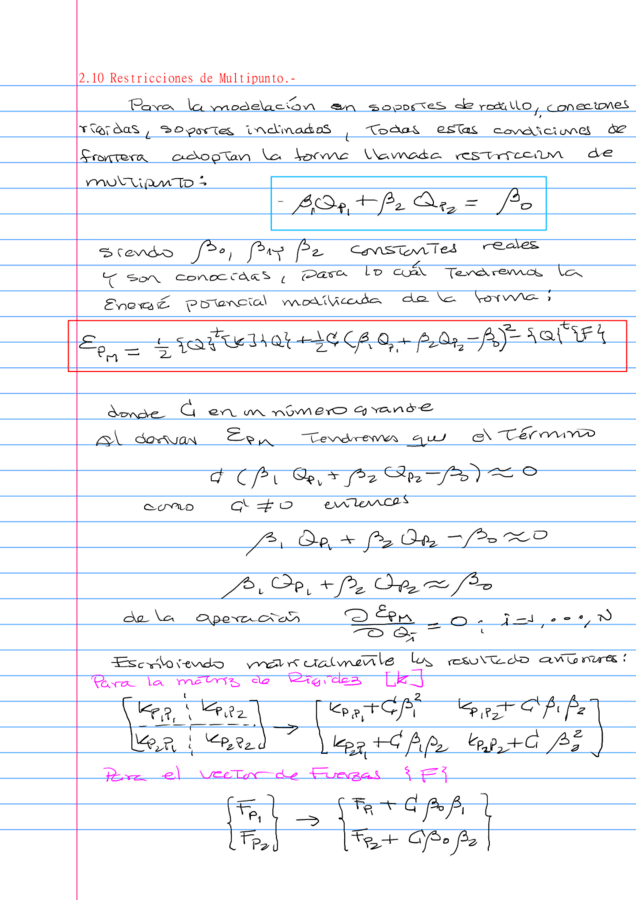 2.10 Restricciones de Multipunto.-
Para la modelación en soportes de rodillo, conexiones
rígidas, soportes inclinados, Todas estas condiciones de
frontera adoptan la forma llamada restricción de
multipunto:
- β₁Q_P₁ + β₂ Q_P₂ = β₀
siendo β₀, β₁ y β₂ constantes reales
y son conocidas, para lo cuál Tendremos la
Energía potencial modificada de la forma:
Ɛ_PM = ½ {Q}ᵗ[K]{Q} + ½ C (β₁ Q_P₁ + β₂ Q_P₂ - β₀)² - {Q}ᵗ{F}
donde C en un número grande
Al derivar Ɛ_PM Tendremos que el Término
C (β₁ Q_P₁ + β₂ Q_P₂ - β₀) ≈ 0
como C ≠ 0 entonces
β₁ Q_P₁ + β₂ Q_P₂ - β₀ ≈ 0
β₁ Q_P₁ + β₂ Q_P₂ ≈ β₀
de la operación ∂Ɛ_PM/∂Q_i = 0 ; i=1, ..., N
Escribiendo matricialmente los resultado anteriores:
Para la matriz de Rigidez [K]
[K_P₁P₁ K_P₁P₂] → [K_P₁P₁ + Cβ₁² K_P₁P₂ + C β₁ β₂]
[K_P₂P₁ K_P₂P₂] [K_P₂P₁ + C β₁β₂ K_P₂P₂ + C β₂²]
Para el vector de Fuerzas {F}
{F_P₁} → {F_P₁ + C β₀ β₁}
{F_P₂} {F_P₂ + C β₀ β₂}